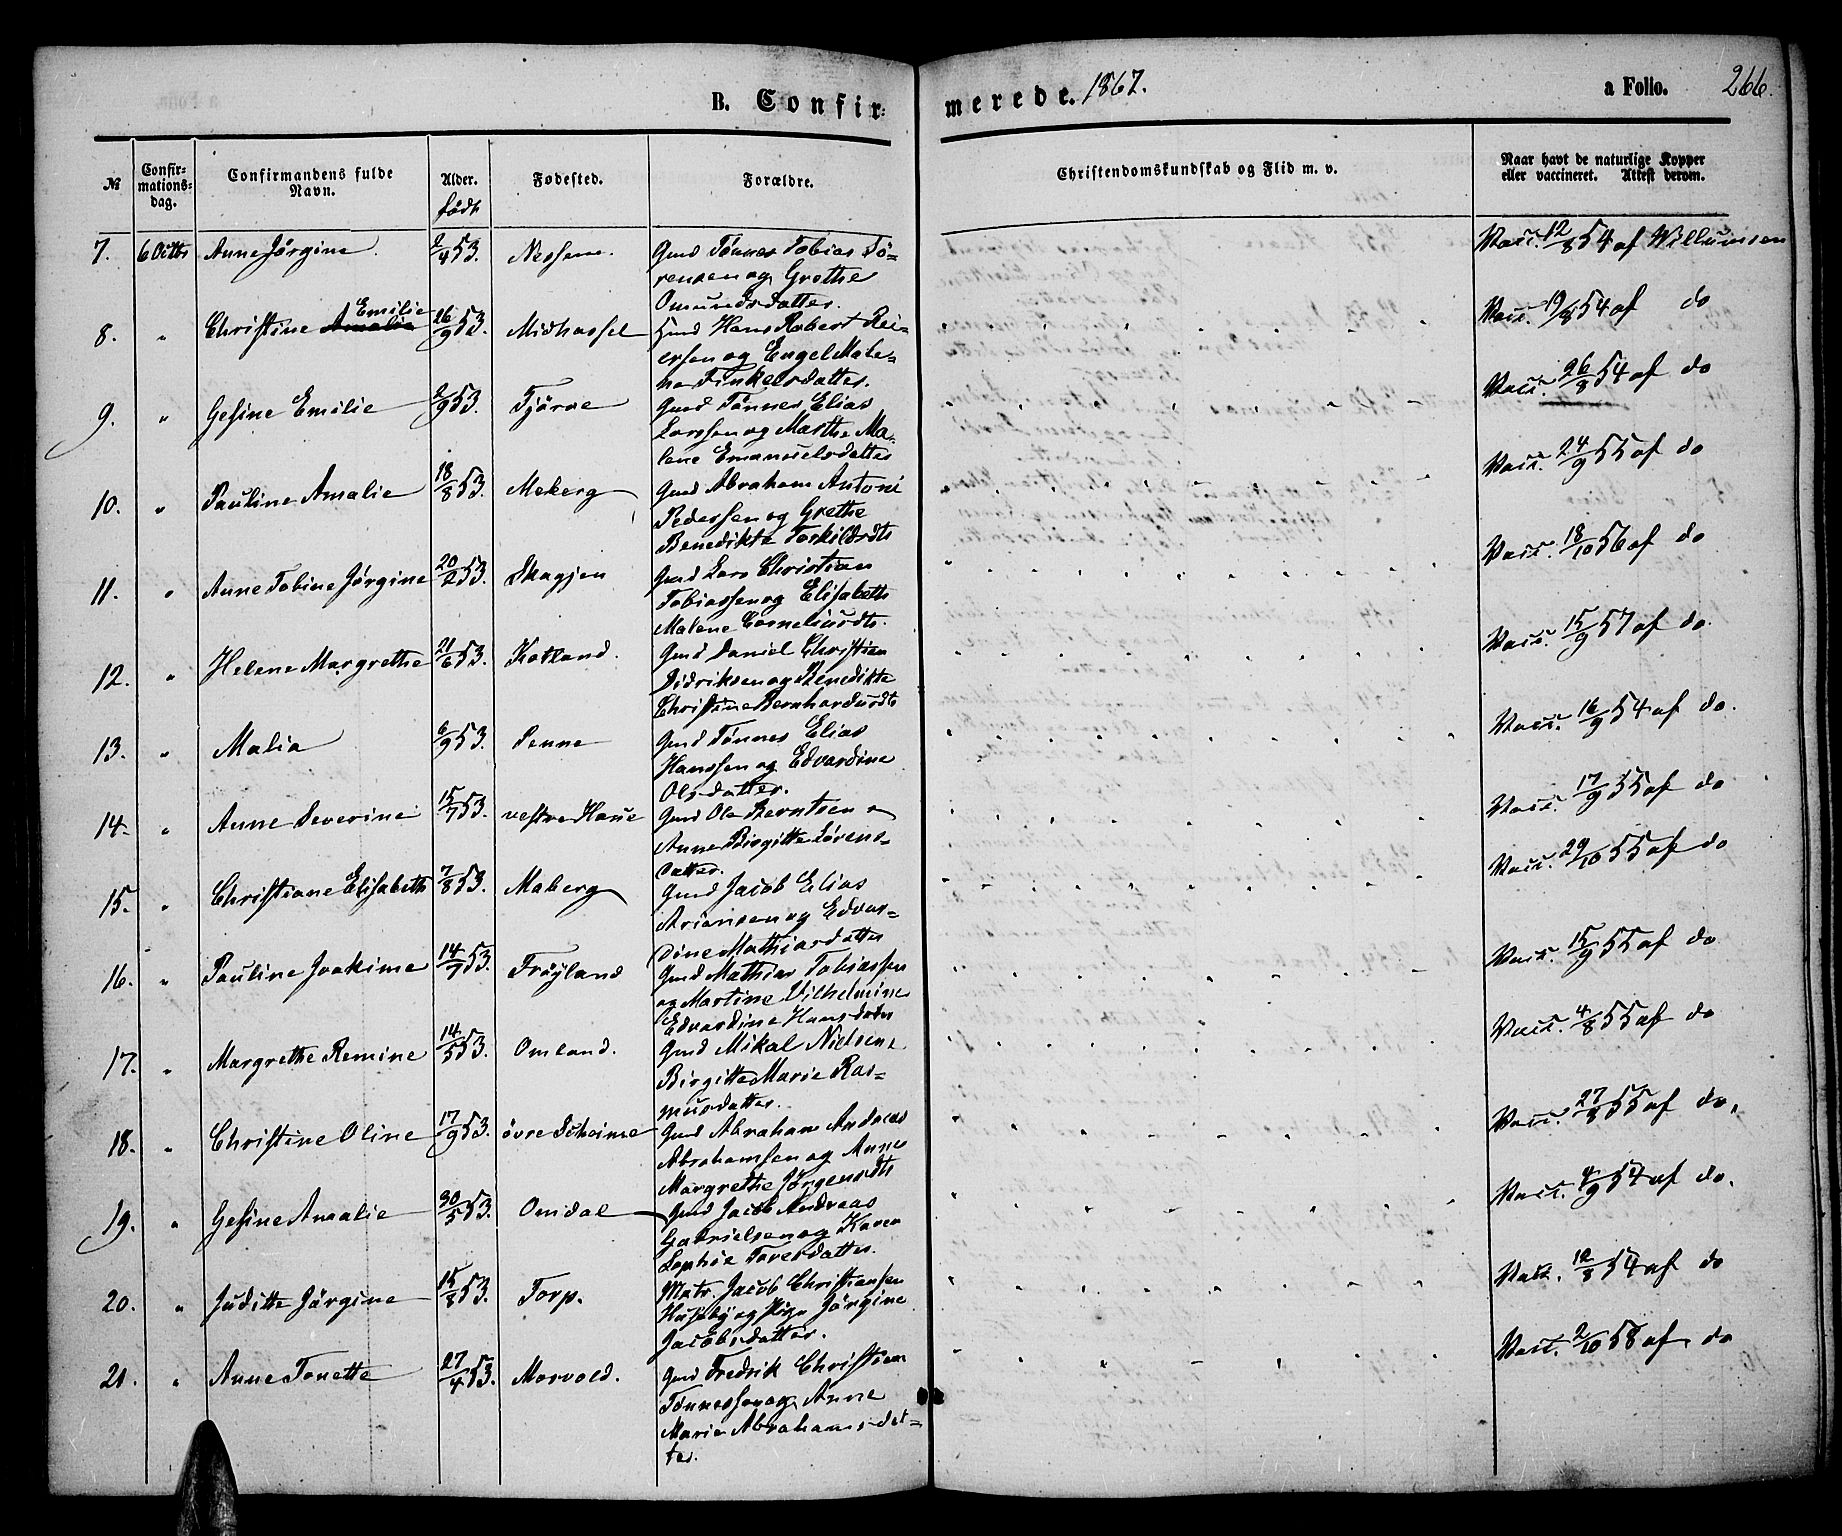 B. Confir-
merede. 1867.
a Folio. 266.
№
Confir-
mations-
dag.
Confirmandens fulde
Navn.
Alder.
født
Fødested.
Forældre.
Christendomskundskab og Flid m. v.
Naar havt de naturlige Kopper
eller vaccineret. Attest derom.
7. 6 Octbr Anne Jørgine. 2/4 53. Nessene. Gmd Tønnes Tobias Sö-
rensen og Grethe
Omundsdatter.
Vacc. 12/8 54 af Willumsen
8. " Christine Amalie Emilie 26/9 53. Midhassel Gmd Hans Robert Rei-
ersen og Engel Male-
ne Finkelsdatter.
Vacc. 19/8 54 af do
9. " Gesine Emilie 2/9 53. Tjörve Gmd Tønnes Elias
Larssen og Marthe Ma-
lene Emanuelsdatter
Vacc. 26/8 54 af do
10. " Pauline Amalie 18/8 53. Meberg Gmd Abraham Antoni
Pedersen og Grethe
Benedikte Torkildsdtr
Vacc. 24/9 55 af do
11. " Anne Tobine Jørgine 20/2 53. Skagjen Gmd Lars Christian
Tobiassen og Elisabeth
Malene Corneliusdtr.
Vacc. 18/10 56 af do
12. " Helene Margrethe 21/6 53. Kotland. Gmd Daniel Christian
Didriksen og Benedikte
Christine Bernhardusdtr
Vacc. 15/9 57 af do.
13. " Malia 6/9 53. Penne Gmd Tønnes Elias
Hanssen og Edvardine
Olsdatter.
Vacc. 16/9 54 af do.
14. " Anne Severine 15/7 53. vestre Haue Gmd Ole Berntsen o
Anne Birgitte Sørens-
datter.
Vacc. 17/9 55 af do
15. " Christiane Elisabeth 7/8 53. Maberg Gmd Jacob Elias
Ariansen og Edvar-
dine Mathiasdatter
Vacc. 29/10 55 af do
16. " Pauline Joakime 14/7 53. Frøyland Gmd Mathias Tobiassen
og Martine Vilhelmine
Edvardine Hansdatter
Vacc. 15/9 55 af do
17. " Margrethe Remine 14/5 53. Omland. Gmd Mikal Nielsen o
Birgitte Marie Ras-
musdatter.
Vacc. 4/8 55 af do
18. " Christine Oline 17/9 53. øvre Skeime Gmd Abraham Andreas
Abrahamsen og Anne
Margrethe Jørgensdtr
Vacc. 27/8 55 af do.
19. " Gesine Amalie 30/5 53. Omdal Gmd Jacob Andreas
Gabrielsen og Karen
Sophie Toresdatter.
Vacc. 4/9 54 af do.
20. " Juditte Jörgine 15/8 53. Torp. Matr. Jacob Christiansen
Huseby og Pige Jörgine
Jacobsdatter.
Vacc. 12/8 54 af do
21. " Anne Tonette 27/4 53. Morvold. Gmd Fredrik Christian
Tønnessen og Anne
Marie Abrahamsdat-
ter.
Vacc. 2/10 58 af do